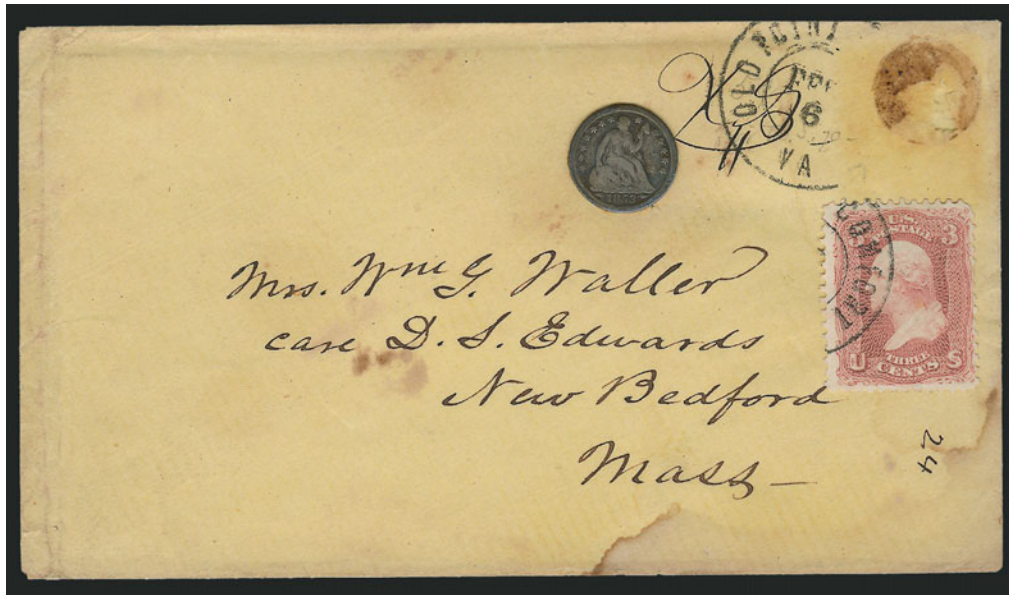 OLD POINT COMFORT
6
VA
1853
U.S.
POSTAGE
3 3
THREE
CENTS
U S
Mrs. Wm G. Waller
care D. S. Edwards
New Bedford
Mass
24